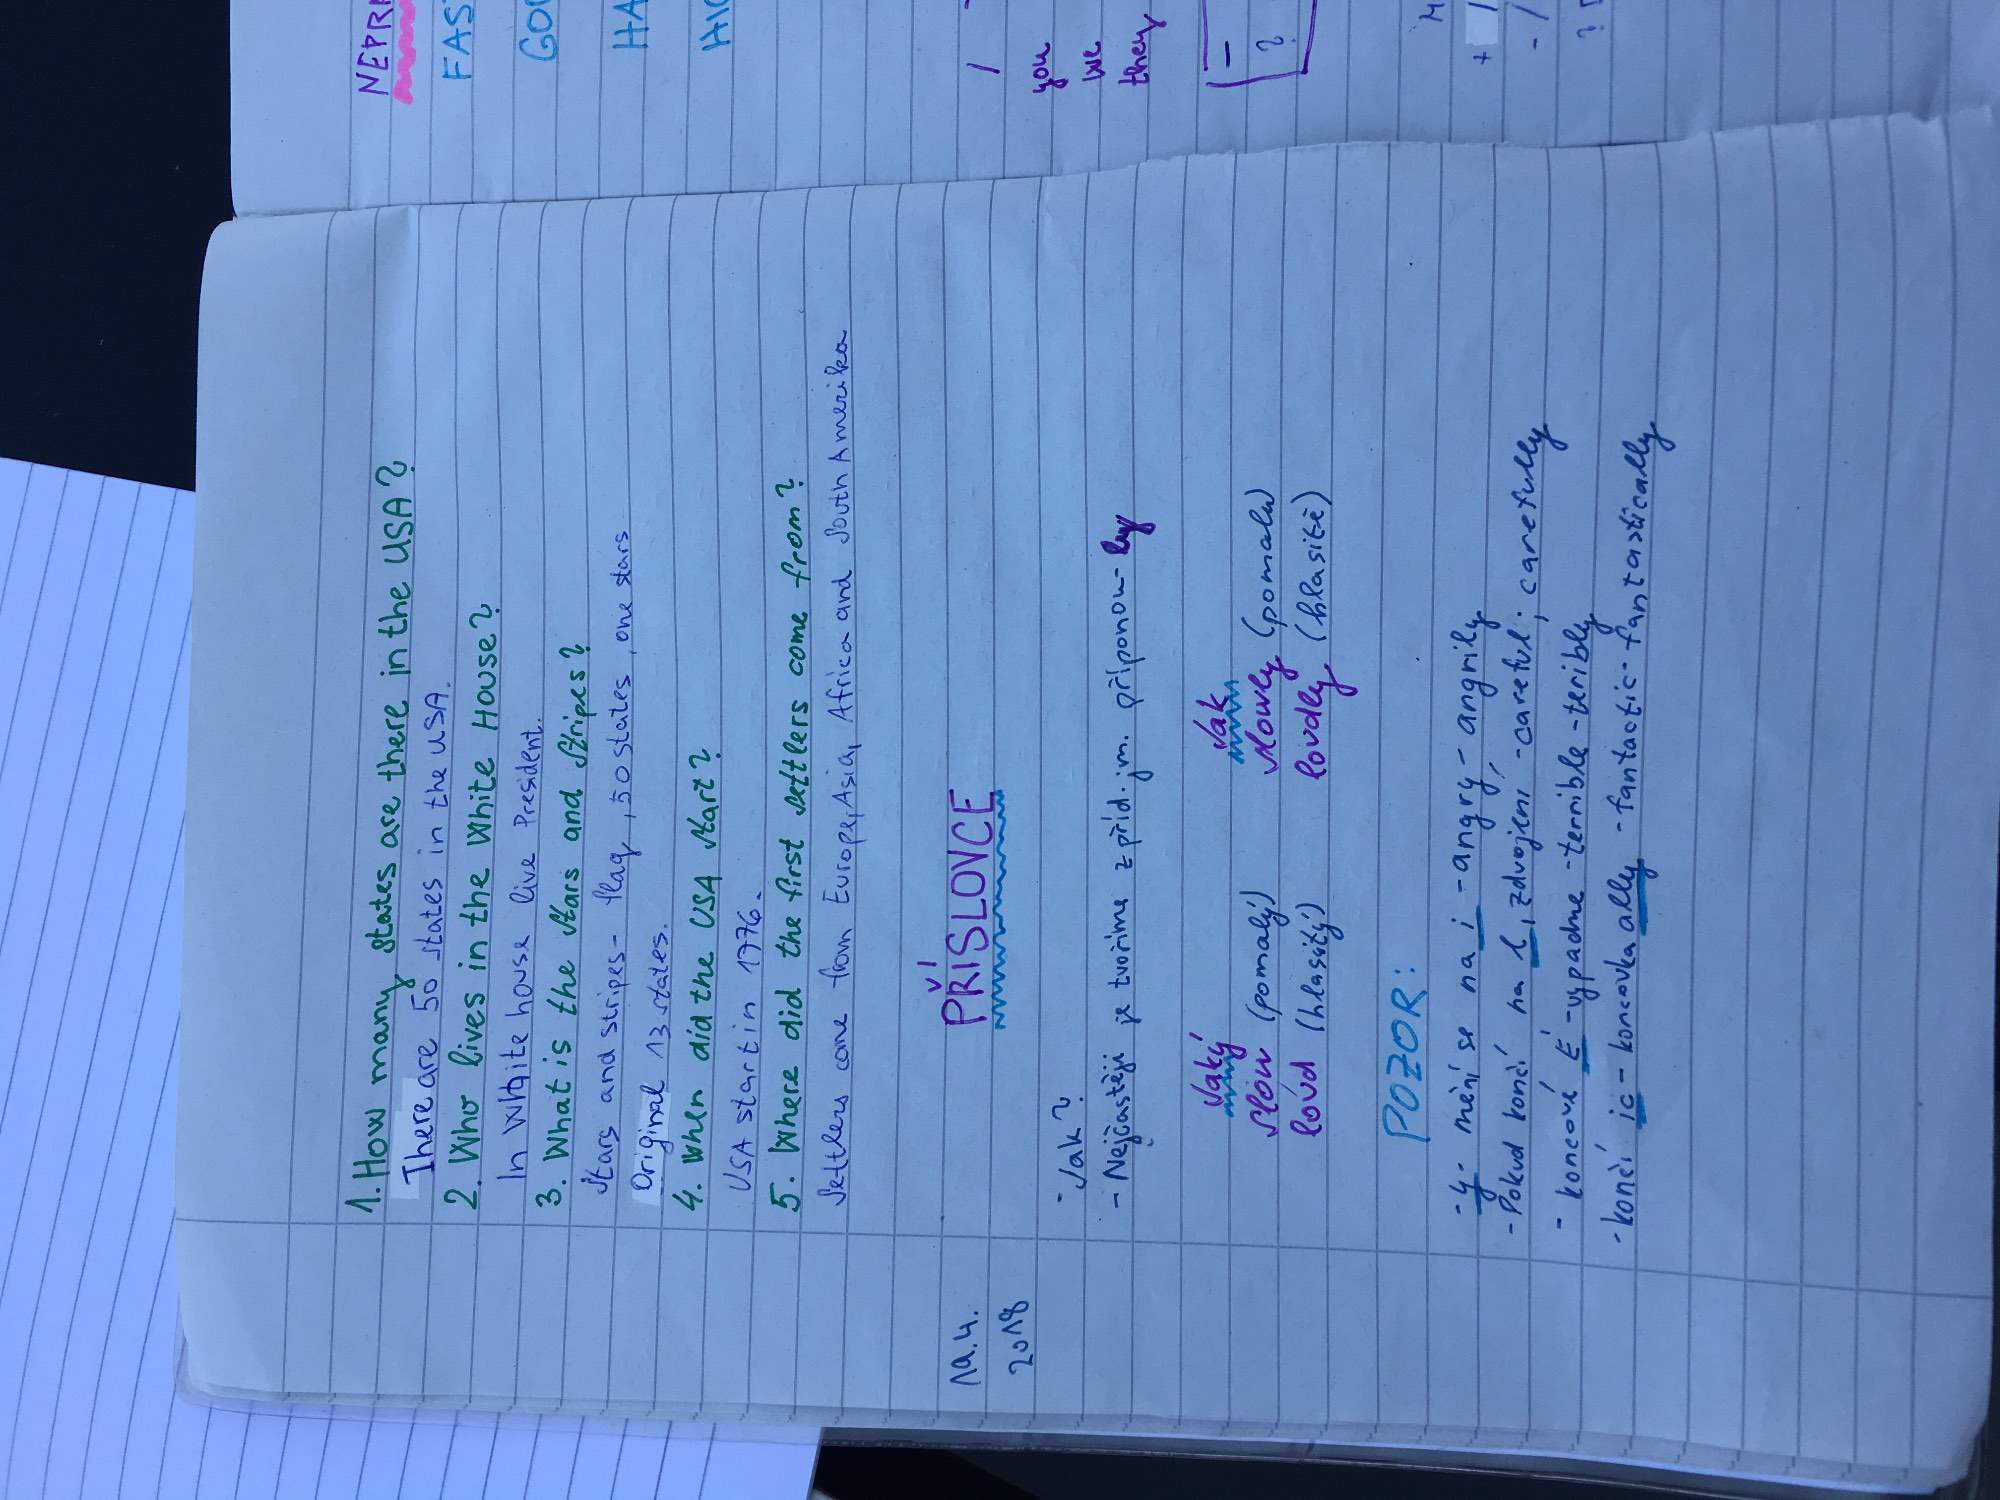 1. How many states are there in the USA?
There are 50 states in the USA.
2. Who lives in the White House?
In White house live President.
3. What is the Stars and Stripes?
Stars and stripes - flag, 50 states, one stars
Original 13 states.
4. When did the USA start?
USA start in 1776.
5. Where did the first settlers come from?
Settlers come from Europe, Asia, Africa and South Amerika
PŘÍSLOVCE
2018
- Jak?
- Nejčastěji je tvoříme z příd. jm. příponou -ly
Jaký Jak
slow (pomalý) slowly (pomalu)
loud (hlasitý) loudly (hlasitě)
POZOR:
- y - mění se na i - angry - angrily
- Pokud končí na l, zdvojení, - careful; carefully
- koncové E - vypadne - terrible - teribly
- končí ic - koncovka ally - fantactic - fantastically
FAS
GO
HA
HI
you
we
they
-
?
+
-
?